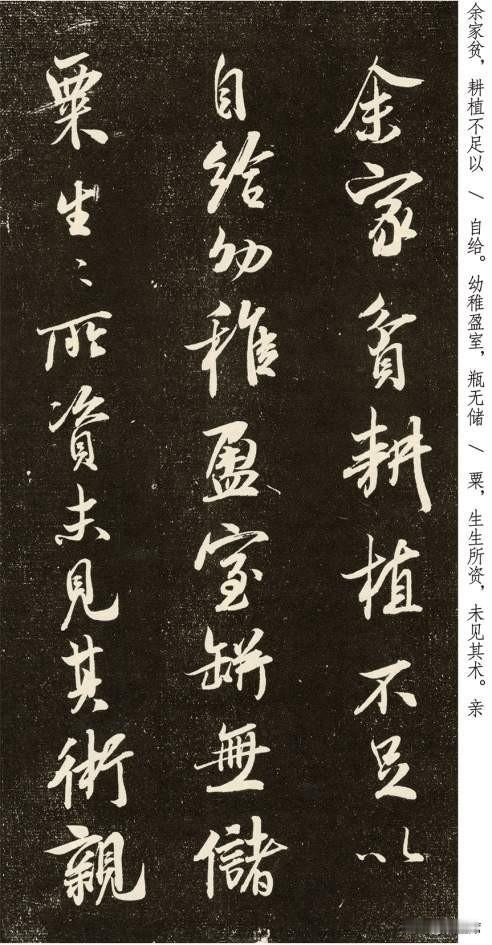 余家貧耕植不足以
自給幼稚盈室缾無儲
粟生〻所資未見其術親
余家贫，耕植不足以 / 自给。幼稚盈室，瓶无储 / 粟，生生所资，未见其术。亲